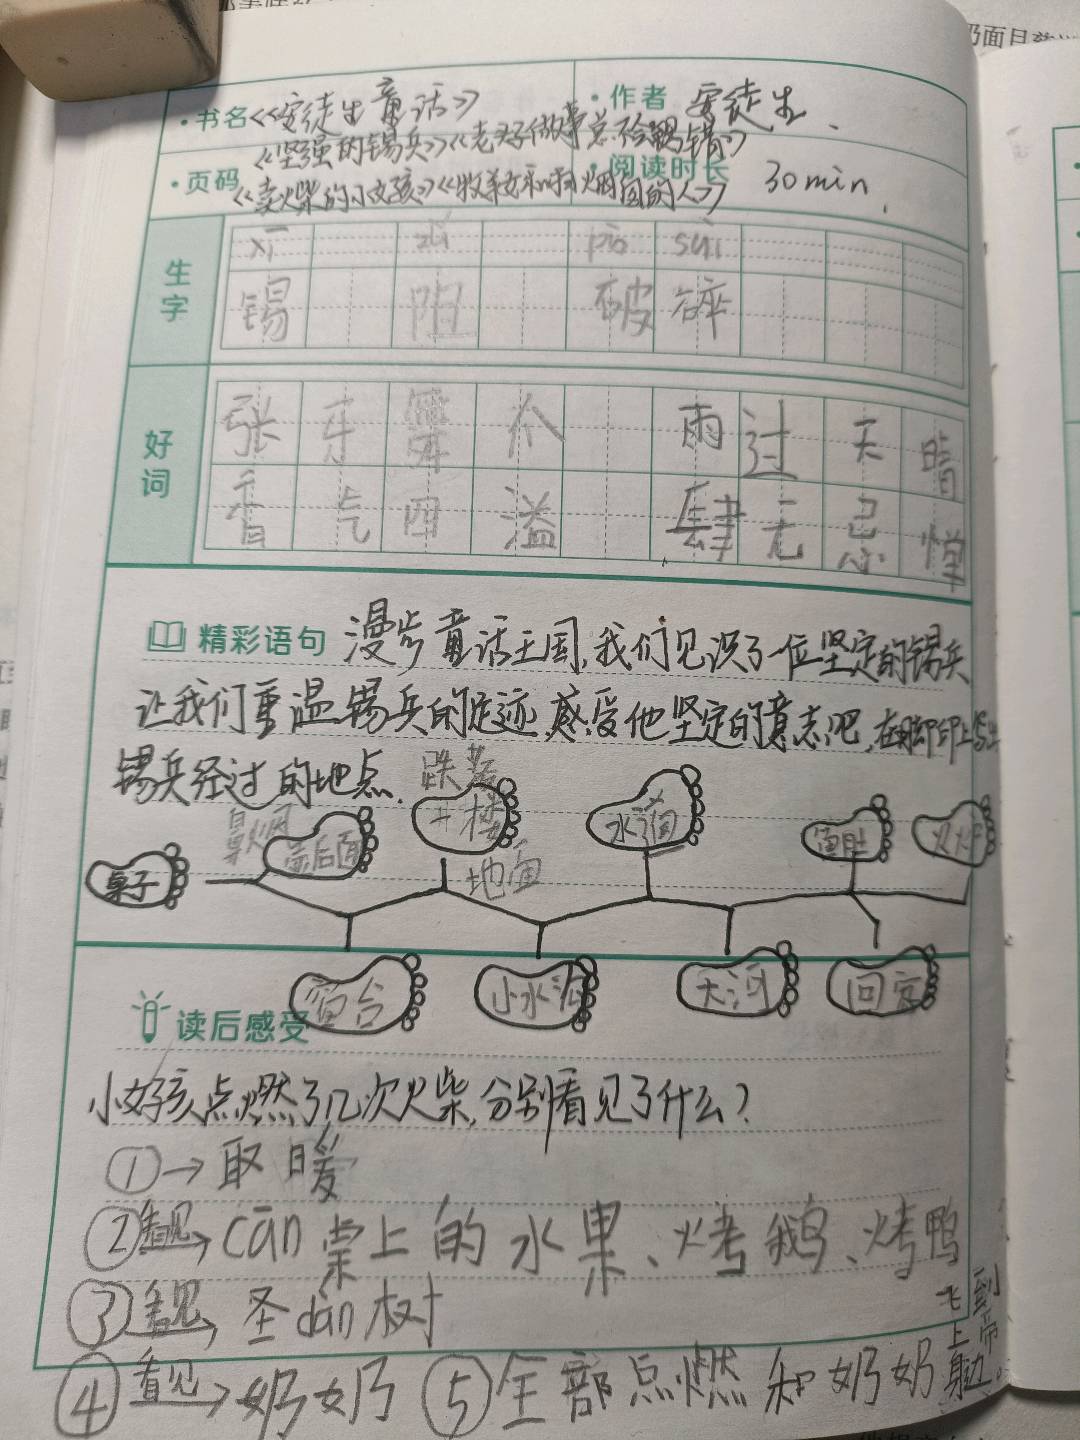 ·书名《安徒生童话》
·作者 安徒生
《坚强的锡兵》《老头子做事总不会错》
·页码
《卖火柴的小女孩》《牧羊女和扫烟囱的人》
·阅读时长 30min
生字
xī zǔ pò suì
锡 阻 破碎
好词
张牙舞爪 雨过天晴
香气四溢 肆无忌惮
精彩语句 漫步童话王国,我们见识了一位坚定的锡兵
让我们重温锡兵的足迹,感受他坚定的意志吧,在脚印上写出
锡兵经过的地点.
跌落
鼻烟 壶后面 三楼 水沟 鱼肚 火炉
桌子 地面
窗台 小水沟 大河 回家
读后感受
小女孩点燃了几次火柴,分别看见了什么?
①→取暖
②看见→cān桌上的水果、烤鹅、烤鸭
③看见→圣dàn树
④看见→奶奶 ⑤全部点燃和奶奶飞到上帝身边。